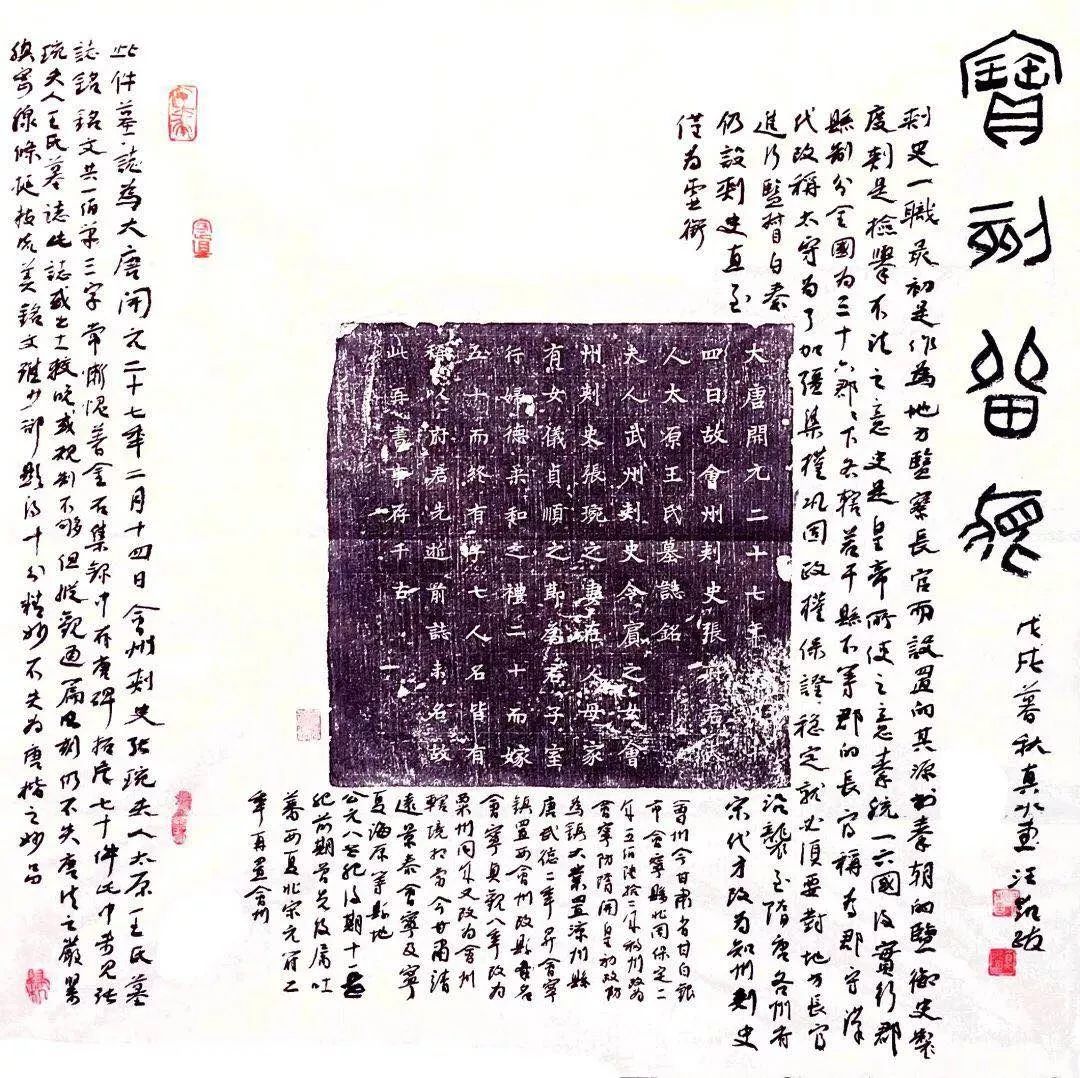 寶刻留無
戊戌暮秋真水並汪箭跋
刺史一職最初是作為地方監察長官而設置的其源於秦朝的監御史製
度刺是檢舉不法之意史是皇帝所使之意秦統一六國後實行郡
縣制分全國為三十六郡下各轄若干縣不等郡的長官稱為郡守漢
代改稱太守為了加強集權鞏固政權保證穩定就必須要對地方長官
進行監督自秦
仍設刺史直至
僅為虛銜
沿襲至隋唐各州有
宋代才改為知州刺史
大唐開元二十七年二月十
四日故會州刺史張府君夫
人太原王氏墓誌銘
夫人武州刺史令賓之女會
州刺史張琬之妻在父母家
有女儀貞順之節為君子室
行婦德柔和之禮二十而嫁
五十而終有子七人名皆有
稱以府君先逝前誌未名故
此再書事存千古
會州今甘肅省甘白銀
市會寧縣北周保定二
年五佰陸拾二年移州改為
會寧防隋開皇初改防
為鎮大業置涼川縣
唐武德二年昇會寧
鎮置西會州改縣名
會寧貞觀八年改為
粟州同年又改為會州
轄境相當今甘肅靖
遠景泰會寧及寧
夏海原等縣地
公元八世紀後期十一世
紀前期曾先後屬吐
蕃西夏北宋元符二
年再置會州
此件墓誌為大唐開元二十七年二月十四日會州刺史張琬夫人太原王氏墓
誌銘銘文共一佰第三字常漸隱著金石集錄中存唐碑拓片七十件此中曾見張
琬夫人王氏墓誌此誌或出土較晚或視制不夠但縱觀通篇風刻仍不失唐法之嚴累
線條挺拔流美銘文雖少卻顯得十分精妙不失為唐楷之妙品